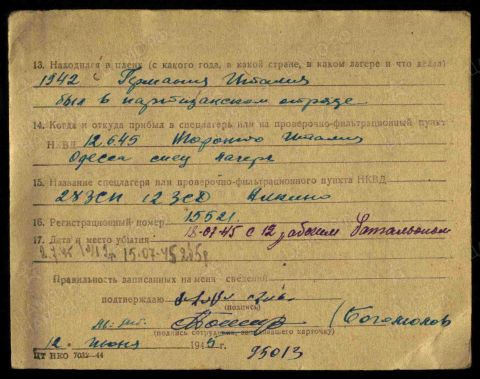 13. Находился в плену (с какого года, в какой стране, в каком лагере и что делал)
1942 с Германия Италия
был в партизанском отряде
14. Когда и откуда прибыл в спецлагерь или на проверочно-фильтрационный пункт
НКВД 12.6.45 Таранто Италия
Одесса спец лагерь
15. Название спецлагеря или проверочно-фильтрационного пункта НКВД
2 ЗСП 12 ЗСД Алкино
16. Регистрационный номер 15521
17. Дата и место убытия 18-07-45 с 12 рабочим батальоном
15-07-45
Правильность записанных на меня сведений
подтверждаю
(подпись)
(Богомолов
(подпись сотрудника, заполнявшего карточку)
12 июня 1945 г. 95013
ЦТ ВКО 7032—44